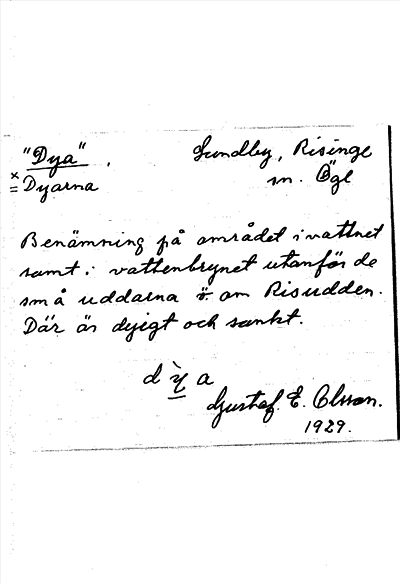 "Dya". Lundby, Risinge
×
= Dyarna sn. Ögl
Benämning på området i vattnet
samt i vattenbrynet utanför de
små uddarna ö. om Risudden.
Där är dyigt och sankt.
d ỳ a
Gustaf. E. Olsson.
1929.